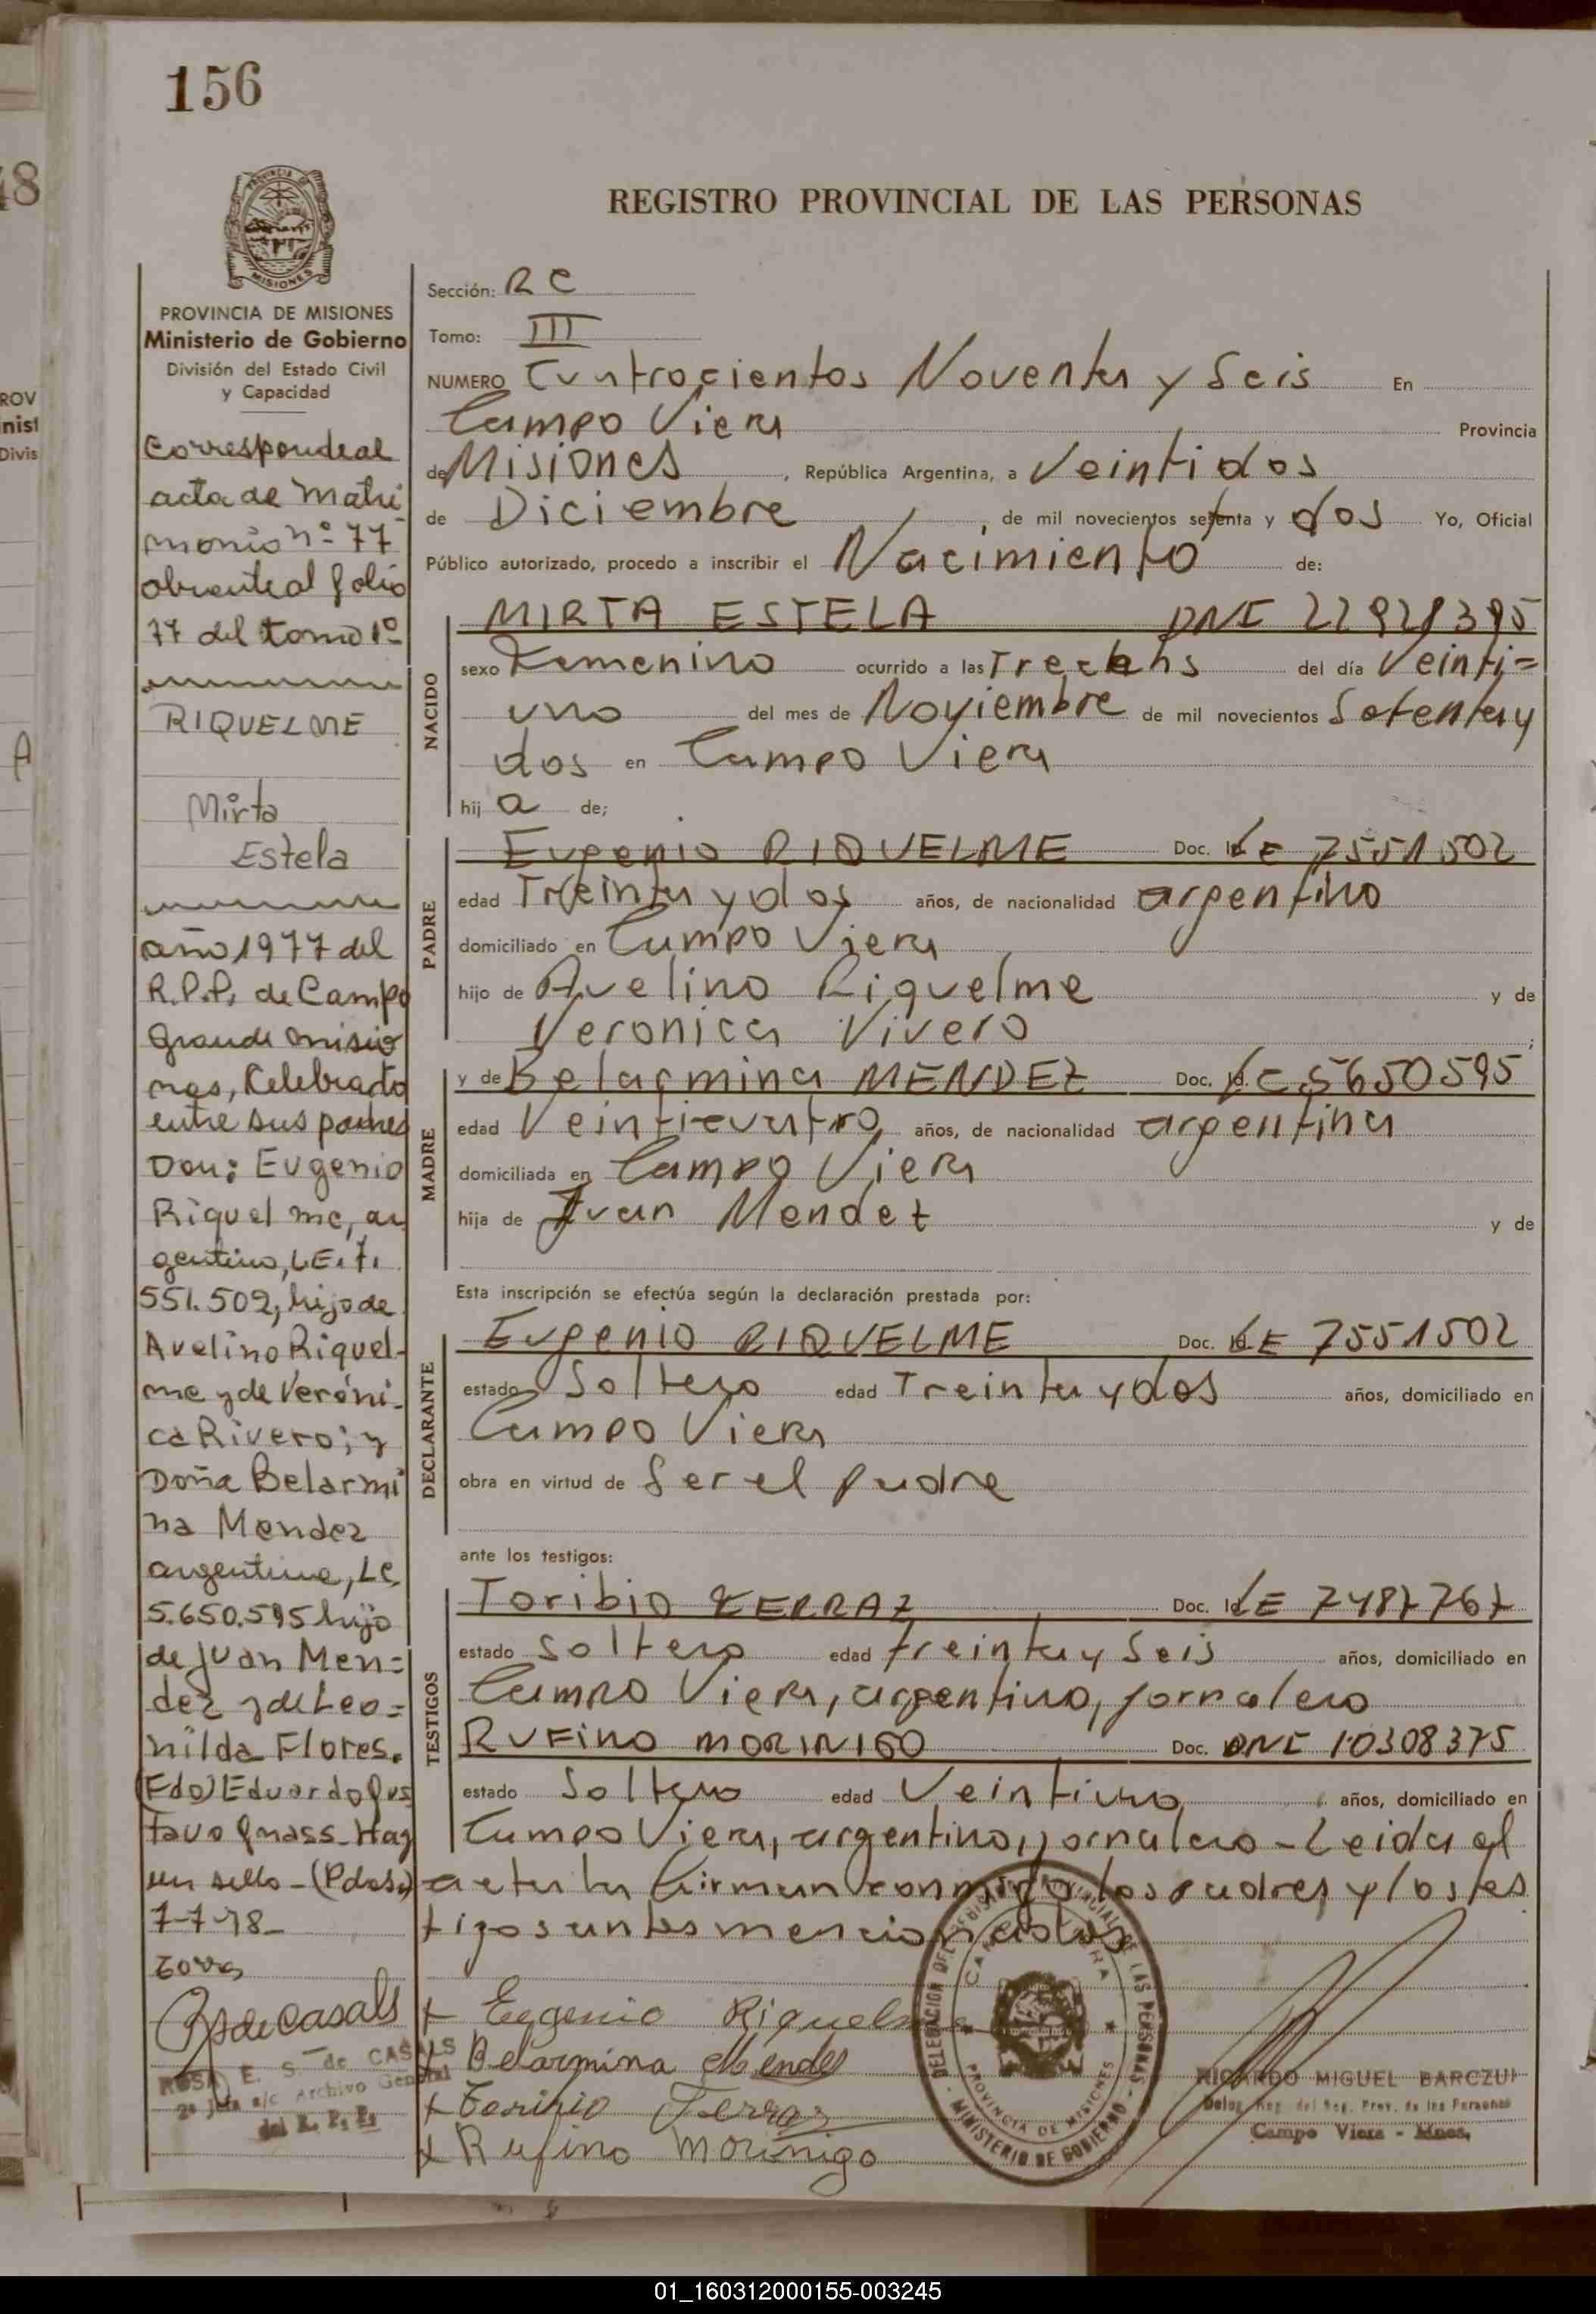 156
REGISTRO PROVINCIAL DE LAS PERSONAS
PROVINCIA DE MISIONES
Ministerio de Gobierno
División del Estado Civil
y Capacidad
Corresponde al
acta de matri
monio nº 77
obrante al folio
77 del tomo 1º
RIQUELME
Mirta
Estela
año 1977 del
R.P.P. de Campo
Grande Misio
nes, Celebrado
entre sus padres
Don: Eugenio
Riquelme, ar
gentino, L.E. 7.
551.502, hijo de
Avelino Riquel-
me y de Veróni-
ca Rivero; y
Doña Belarmi
na Mendez
argentina, LC.
5.650.595 hija
de Juan Men=
dez y de Leo=
nilda Flores.
(Fdo) Eduardo Gus
tavo Hay
un sello - (Pdas)
7-7-78-
ROSA E. S. de CASALS
2º Jefa a/c Archivo General
del R. P. P.
Sección: RC
Tomo: III
NUMERO Cuatrocientos Noventa y Seis En
Campo Viera Provincia
de Misiones, República Argentina, a Veintidos
de Diciembre, de mil novecientos setenta y dos Yo, Oficial
Público autorizado, procedo a inscribir el Nacimiento de:
NACIDO
MIRTA ESTELA DNI 22928395
sexo Femenino ocurrido a las Trece hs del día Veinti=
uno del mes de Noviembre de mil novecientos Setenta y
dos en Campo Viera
hij a de;
PADRE
Eugenio RIQUELME Doc. Id. LE 7551502
edad Treinta y dos años, de nacionalidad argentino
domiciliado en Campo Viera
hijo de Avelino Riquelme y de
Veronica Vivero;
MADRE
y de Belarmina MENDEZ Doc. Id. LC 5650595
edad Veinticuatro años, de nacionalidad argentina
domiciliada en Campo Viera
hija de Juan Mendez y de
Esta inscripción se efectúa según la declaración prestada por:
DECLARANTE
Eugenio RIQUELME Doc. Id. LE 7551502
estado Soltero edad Treinta y dos años, domiciliado en
Campo Viera
obra en virtud de Ser el padre
ante los testigos:
TESTIGOS
Toribio FERRAZ Doc. Id. LE 7487767
estado Soltero edad treinta y Seis años, domiciliado en
Campo Viera, argentino, jornalero
RUFINO MORINIGO Doc. DNI 10308375
estado Soltero edad Veintiuno años, domiciliado en
Campo Viera, argentino, jornalero - Leida el
acta la firman conmigo los padres y los tes
tigos antes mencionados
x Eugenio Riquelme
x Belarmina Mendes
x Toribio Ferraz
x Rufino Morinigo
DELEGACION DEL REGISTRO PROVINCIAL DE LAS PERSONAS
CAMPO VIERA
PROVINCIA DE MISIONES
MINISTERIO DE GOBIERNO
RICARDO MIGUEL BARCZUK
Deleg. Reg. del Reg. Prov. de las Personas
Campo Viera - Mnes.
01_160312000155-003245